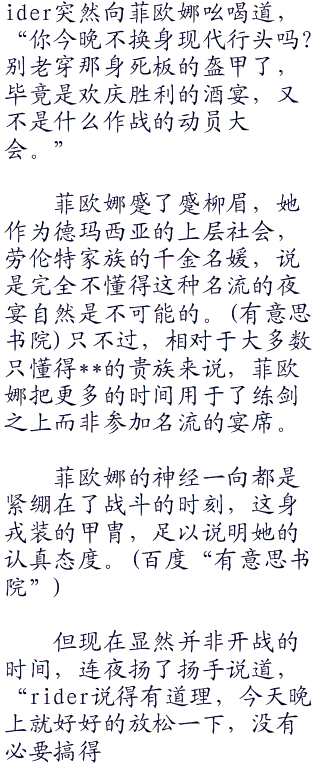 ider突然向菲欧娜吆喝道，
“你今晚不换身现代行头吗？
别老穿那身死板的盔甲了，
毕竟是欢庆胜利的酒宴，又
不是什么作战的动员大
会。”
菲欧娜蹙了蹙柳眉，她
作为德玛西亚的上层社会，
劳伦特家族的千金名媛，说
是完全不懂得这种名流的夜
宴自然是不可能的。(有意思
书院)只不过，相对于大多数
只懂得**的贵族来说，菲欧
娜把更多的时间用于了练剑
之上而非参加名流的宴席。
菲欧娜的神经一向都是
紧绷在了战斗的时刻，这身
戎装的甲胄，足以说明她的
认真态度。(百度“有意思书
院”)
但现在显然并非开战的
时间，连夜扬了扬手说道，
“rider说得有道理，今天晚
上就好好的放松一下，没有
必要搞得